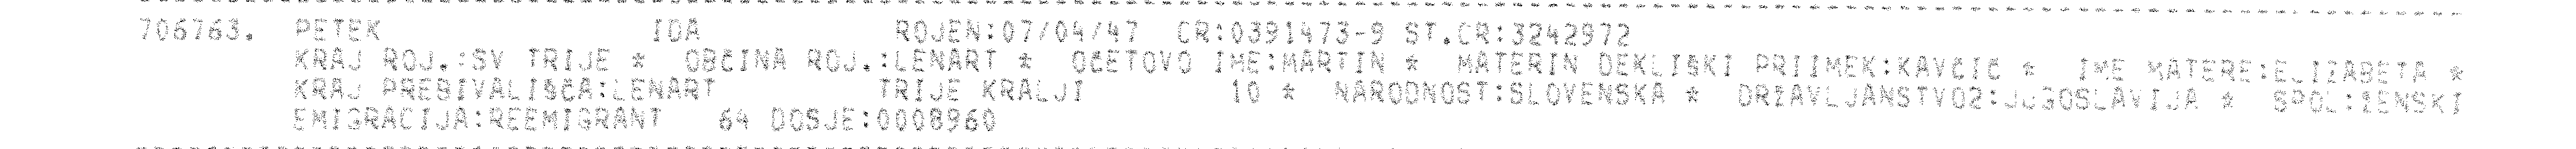 706763. PETEK IDA ROJEN:07/04/47 CR:0391473-9 ST.CR:3242972
KRAJ ROJ.:SV TRIJE * OBČINA ROJ.:LENART * OČETOVO IME:MARTIN * MATERIN DEKLIŠKI PRIIMEK:KAVČIČ * IME MATERE:ELIZABETA *
KRAJ PREBIVALIŠČA:LENART TRIJE KRALJI 10 * NARODNOST:SLOVENSKA * DRŽAVLJANSTVO2:JUGOSLAVIJA * SPOL:ŽENSKI
EMIGRACIJA:REEMIGRANT 64 DOSJE:0008960